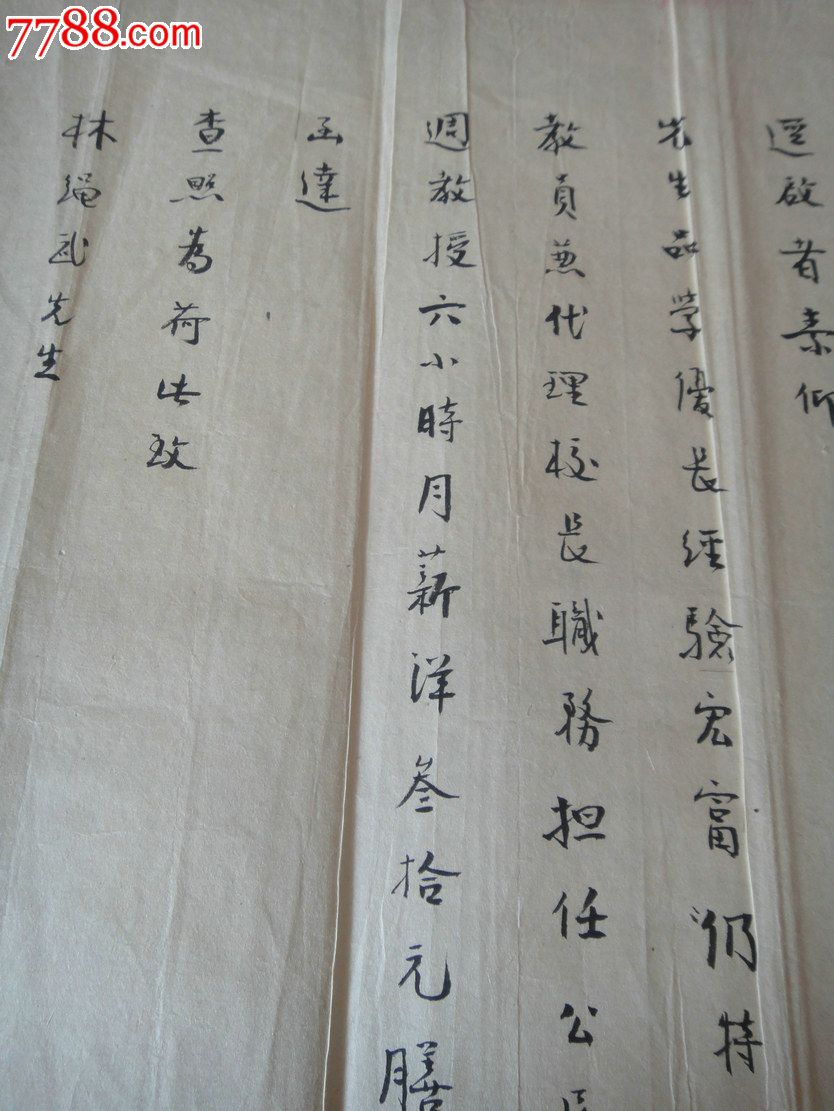 7788.com
逕啟者素仰
先生品学優長經驗宏富仍特
教員兼代理校長職務担任公民
週教授六小時月薪洋叁拾元膳
函達
查照為荷此致
林绳武先生